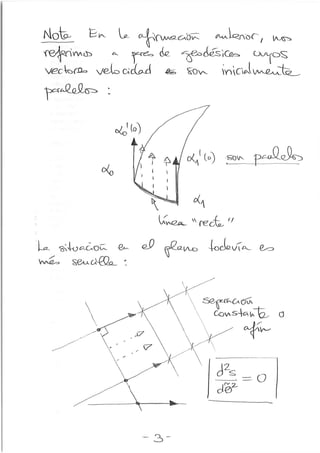 Nota En la afirmación anterior, nos
referimos a pares de geodésicas cuyos
vectores velocidad son inicialmente
paralelos :
α₀'(0)
α₁'(0) son paralelos
α₀
α₁
línea "recta"
La situación en el plano todavía es
más sencilla :
separación
constante o
afín
d²s/dθ̃² = 0
- 3 -